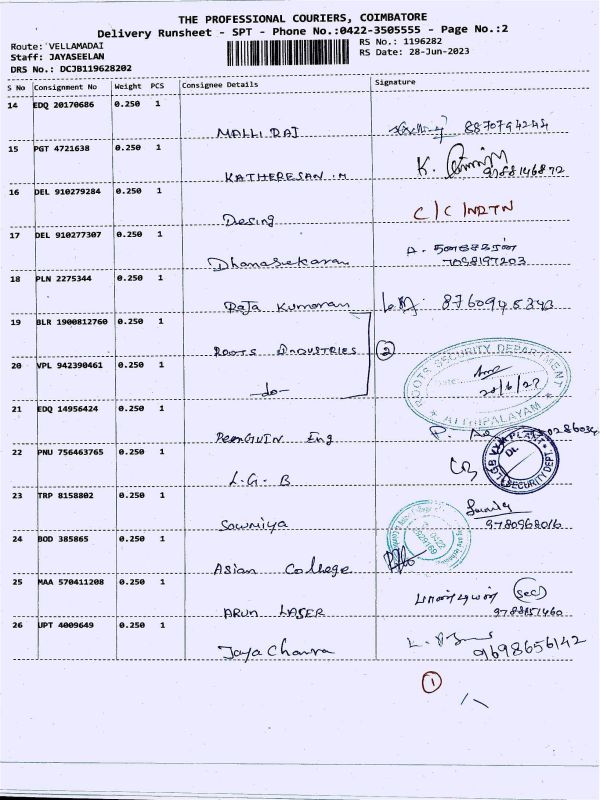 THE PROFESSIONAL COURIERS, COIMBATORE
Delivery Runsheet - SPT - Phone No.:0422-3505555 - Page No.:2
Route: VELLAMADAI
RS No.: 1196282
Staff: JAYASEELAN
RS Date: 28-Jun-2023
DRS No.: DCJB119628202
S No Consignment No Weight PCS Consignee Details Signature
14 EDQ 20170686 0.250 1
MALLI RAJ 8870794244
15 PGT 4721638 0.250 1
KATHERESAN .M K. 9788146872
16 DEL 910279284 0.250 1
Desing C/C INRTN
17 DEL 910277307 0.250 1
Dhanasekaran A. தனசேகரன்
7058197203
18 PLN 2275344 0.250 1
Raja Kumaran
19 BLR 1900812760 0.250 1
ROOTS INDUSTRIES 2
20 VPL 942390461 0.250 1
-do-
ROOTS SECURITY DEPARTMENT
Date
ATHIPALAYAM
21 EDQ 14956424 0.250 1
PEENGUIN Eng
22 PNU 756463765 0.250 1
L.G.B
SECURITY DEPT.
23 TRP 8158802 0.250 1
Sowmiya
9780968016
24 BOD 385865 0.250 1
Asian College
25 MAA 570411208 0.250 1
ARUN LASER பாண்டியன் Sec
26 UPT 4009649 0.250 1
Jaya Chanra 9698656142
1